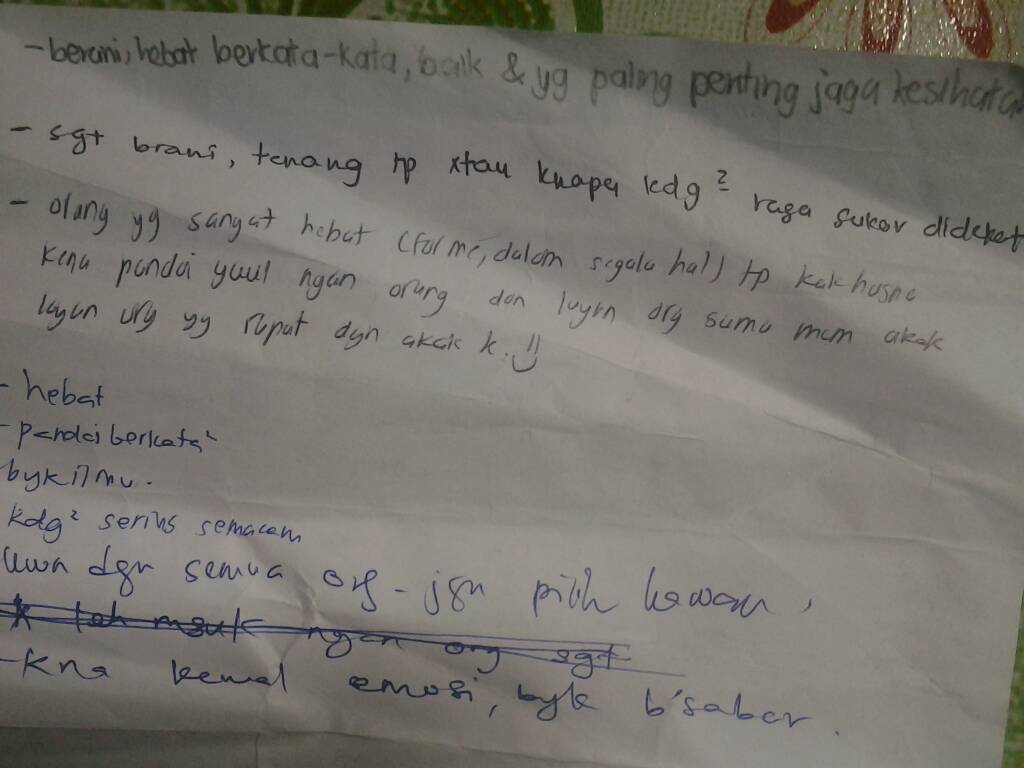 - berani, hebat berkata-kata, baik & yg paling penting jaga kesihata
- sgt brani, tenang tp xtau knapa kdg² rasa sukar didekat
- olang yg sangat hebat (for me, dalam segala hal) tp kak husna
kena pandai gaul ngan orang dan layan org sama mcm akak
layan org yg rapat dgn akak k. =)
- hebat
- pandai berkata²
byk ilmu.
kdg² serius semacam
kwn dgn semua org - jgn pilih kawan,
x leh msuk ngan org sgt
- kna kawal emosi, byk b'sabar.